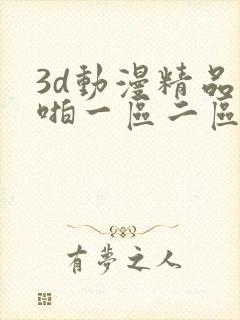 3d動漫精品
啪一區二區
有夢之人